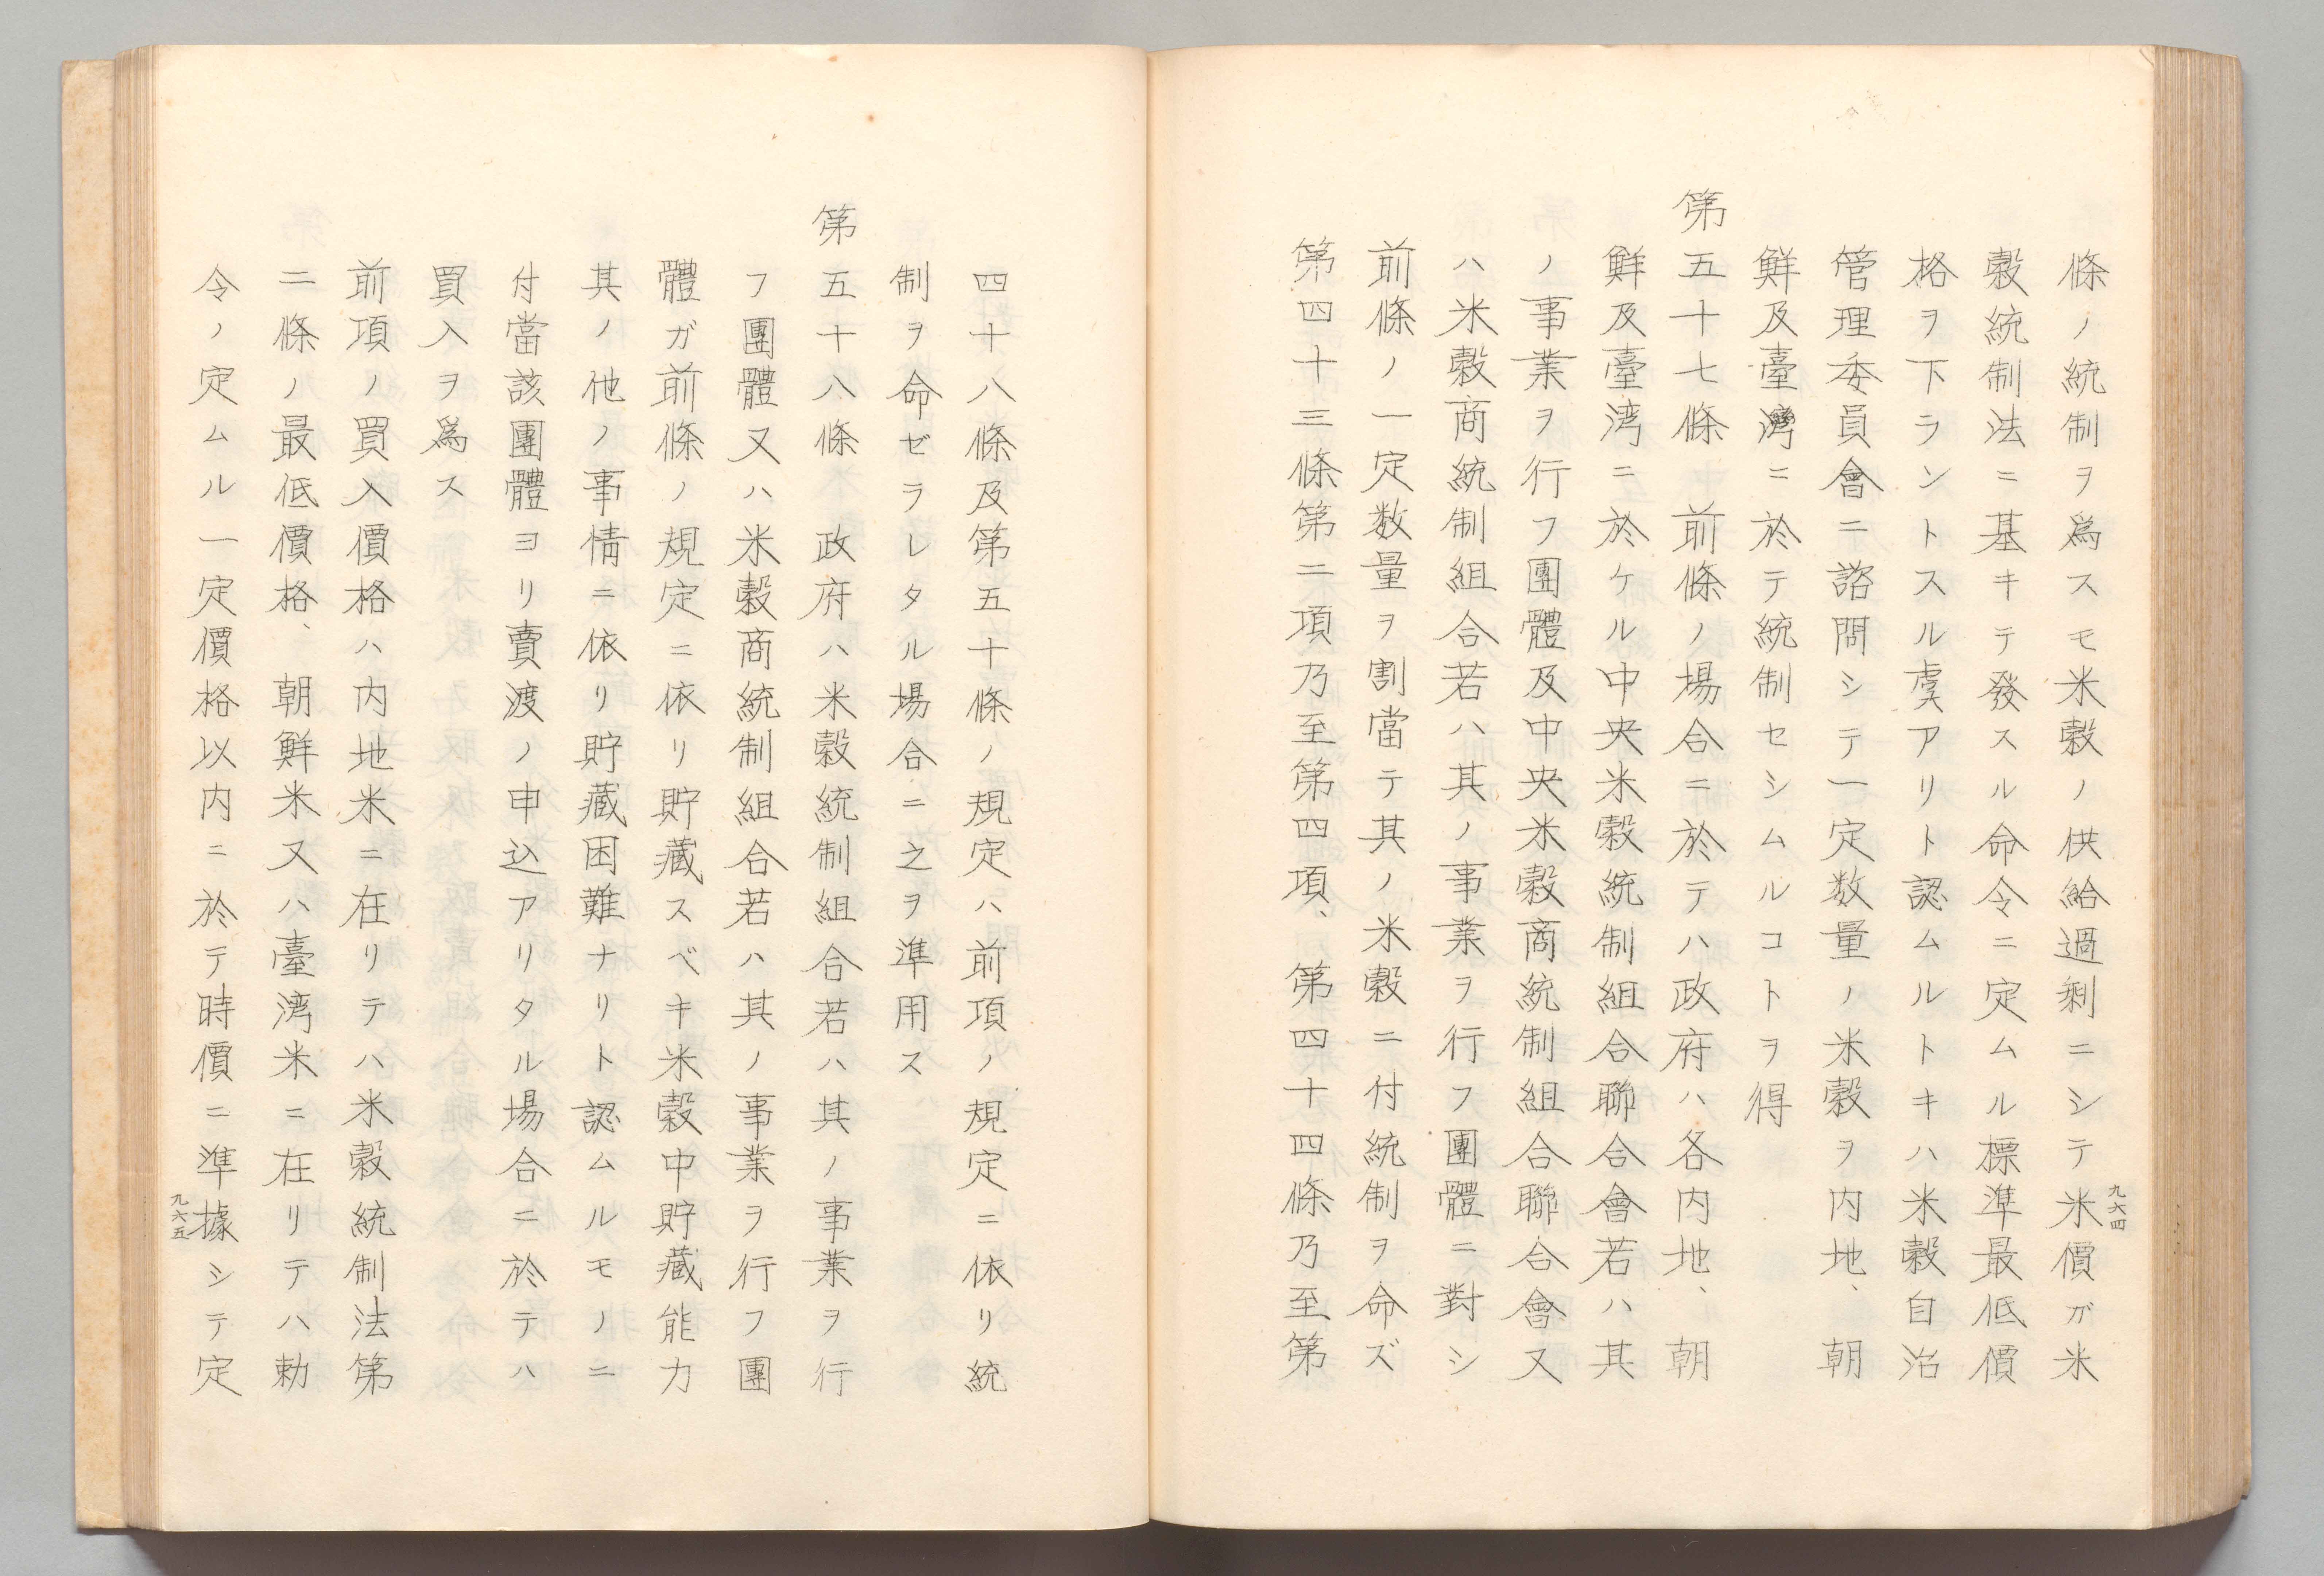 條ノ統制ヲ爲スモ米穀ノ供給過剰ニシテ米價ガ米
穀統制法ニ基キテ發スル命令ニ定ムル標準最低價
格ヲ下ラントスル虞アリト認ムルトキハ米穀自治
管理委員會ニ諮問シテ一定数量ノ米穀ヲ内地、朝
鮮及臺灣ニ於テ統制セシムルコトヲ得
第五十七條　前條ノ場合ニ於テハ政府ハ各内地、朝
鮮及臺湾ニ於ケル中央米穀統制組合聯合會若ハ其
ノ事業ヲ行フ團體及中央米穀商統制組合聯合會又
ハ米穀商統制組合若ハ其ノ事業ヲ行フ團體ニ對シ
前條ノ一定数量ヲ割當テ其ノ米穀ニ付統制ヲ命ズ
第四十三條第二項乃至第四項、第四十四條乃至第
九六四
四十八條及第五十條ノ規定ハ前項ノ規定ニ依リ統
制ヲ命ゼラレタル場合ニ之ヲ準用ス
第五十八條　政府ハ米穀統制組合若ハ其ノ事業ヲ行
フ團體又ハ米穀商統制組合若ハ其ノ事業ヲ行フ團
體ガ前條ノ規定ニ依リ貯藏スベキ米穀中貯藏能力
其ノ他ノ事情ニ依リ貯藏困難ナリト認ムルモノニ
付當該團體ヨリ賣渡ノ申込アリタル場合ニ於テハ
買入ヲ爲ス
前項ノ買入價格ハ内地米ニ在リテハ米穀統制法第
二條ノ最低價格、朝鮮米又ハ臺湾米ニ在リテハ勅
令ノ定ムル一定價格以内ニ於テ時價ニ準據シテ定
九六五